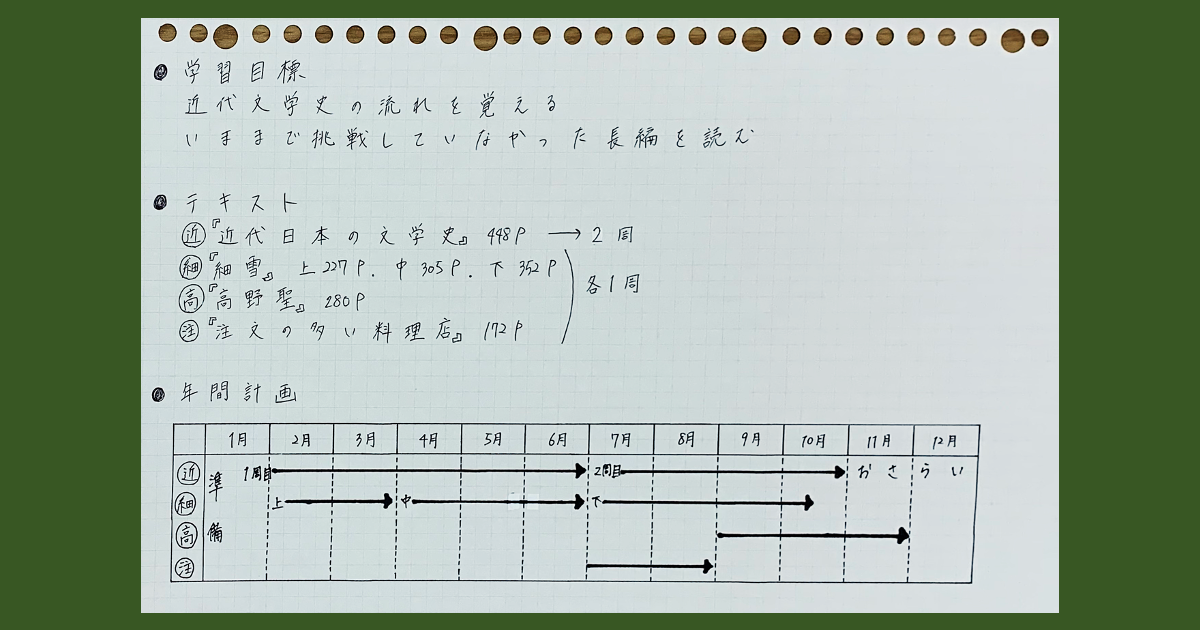 学習目標
近代文学史の流れを覚える
いままで挑戦していなかった長編を読む
テキスト
近 『近代日本の文学史』 448P → 2周
細 『細雪』 上227P. 中305P. 下352P
高 『高野聖』 280P
注 『注文の多い料理店』 172P
各1周
年間計画
1月 2月 3月 4月 5月 6月 7月 8月 9月 10月 11月 12月
準備
近 1周目 2周目 おさらい
細 上 中 下
高
注